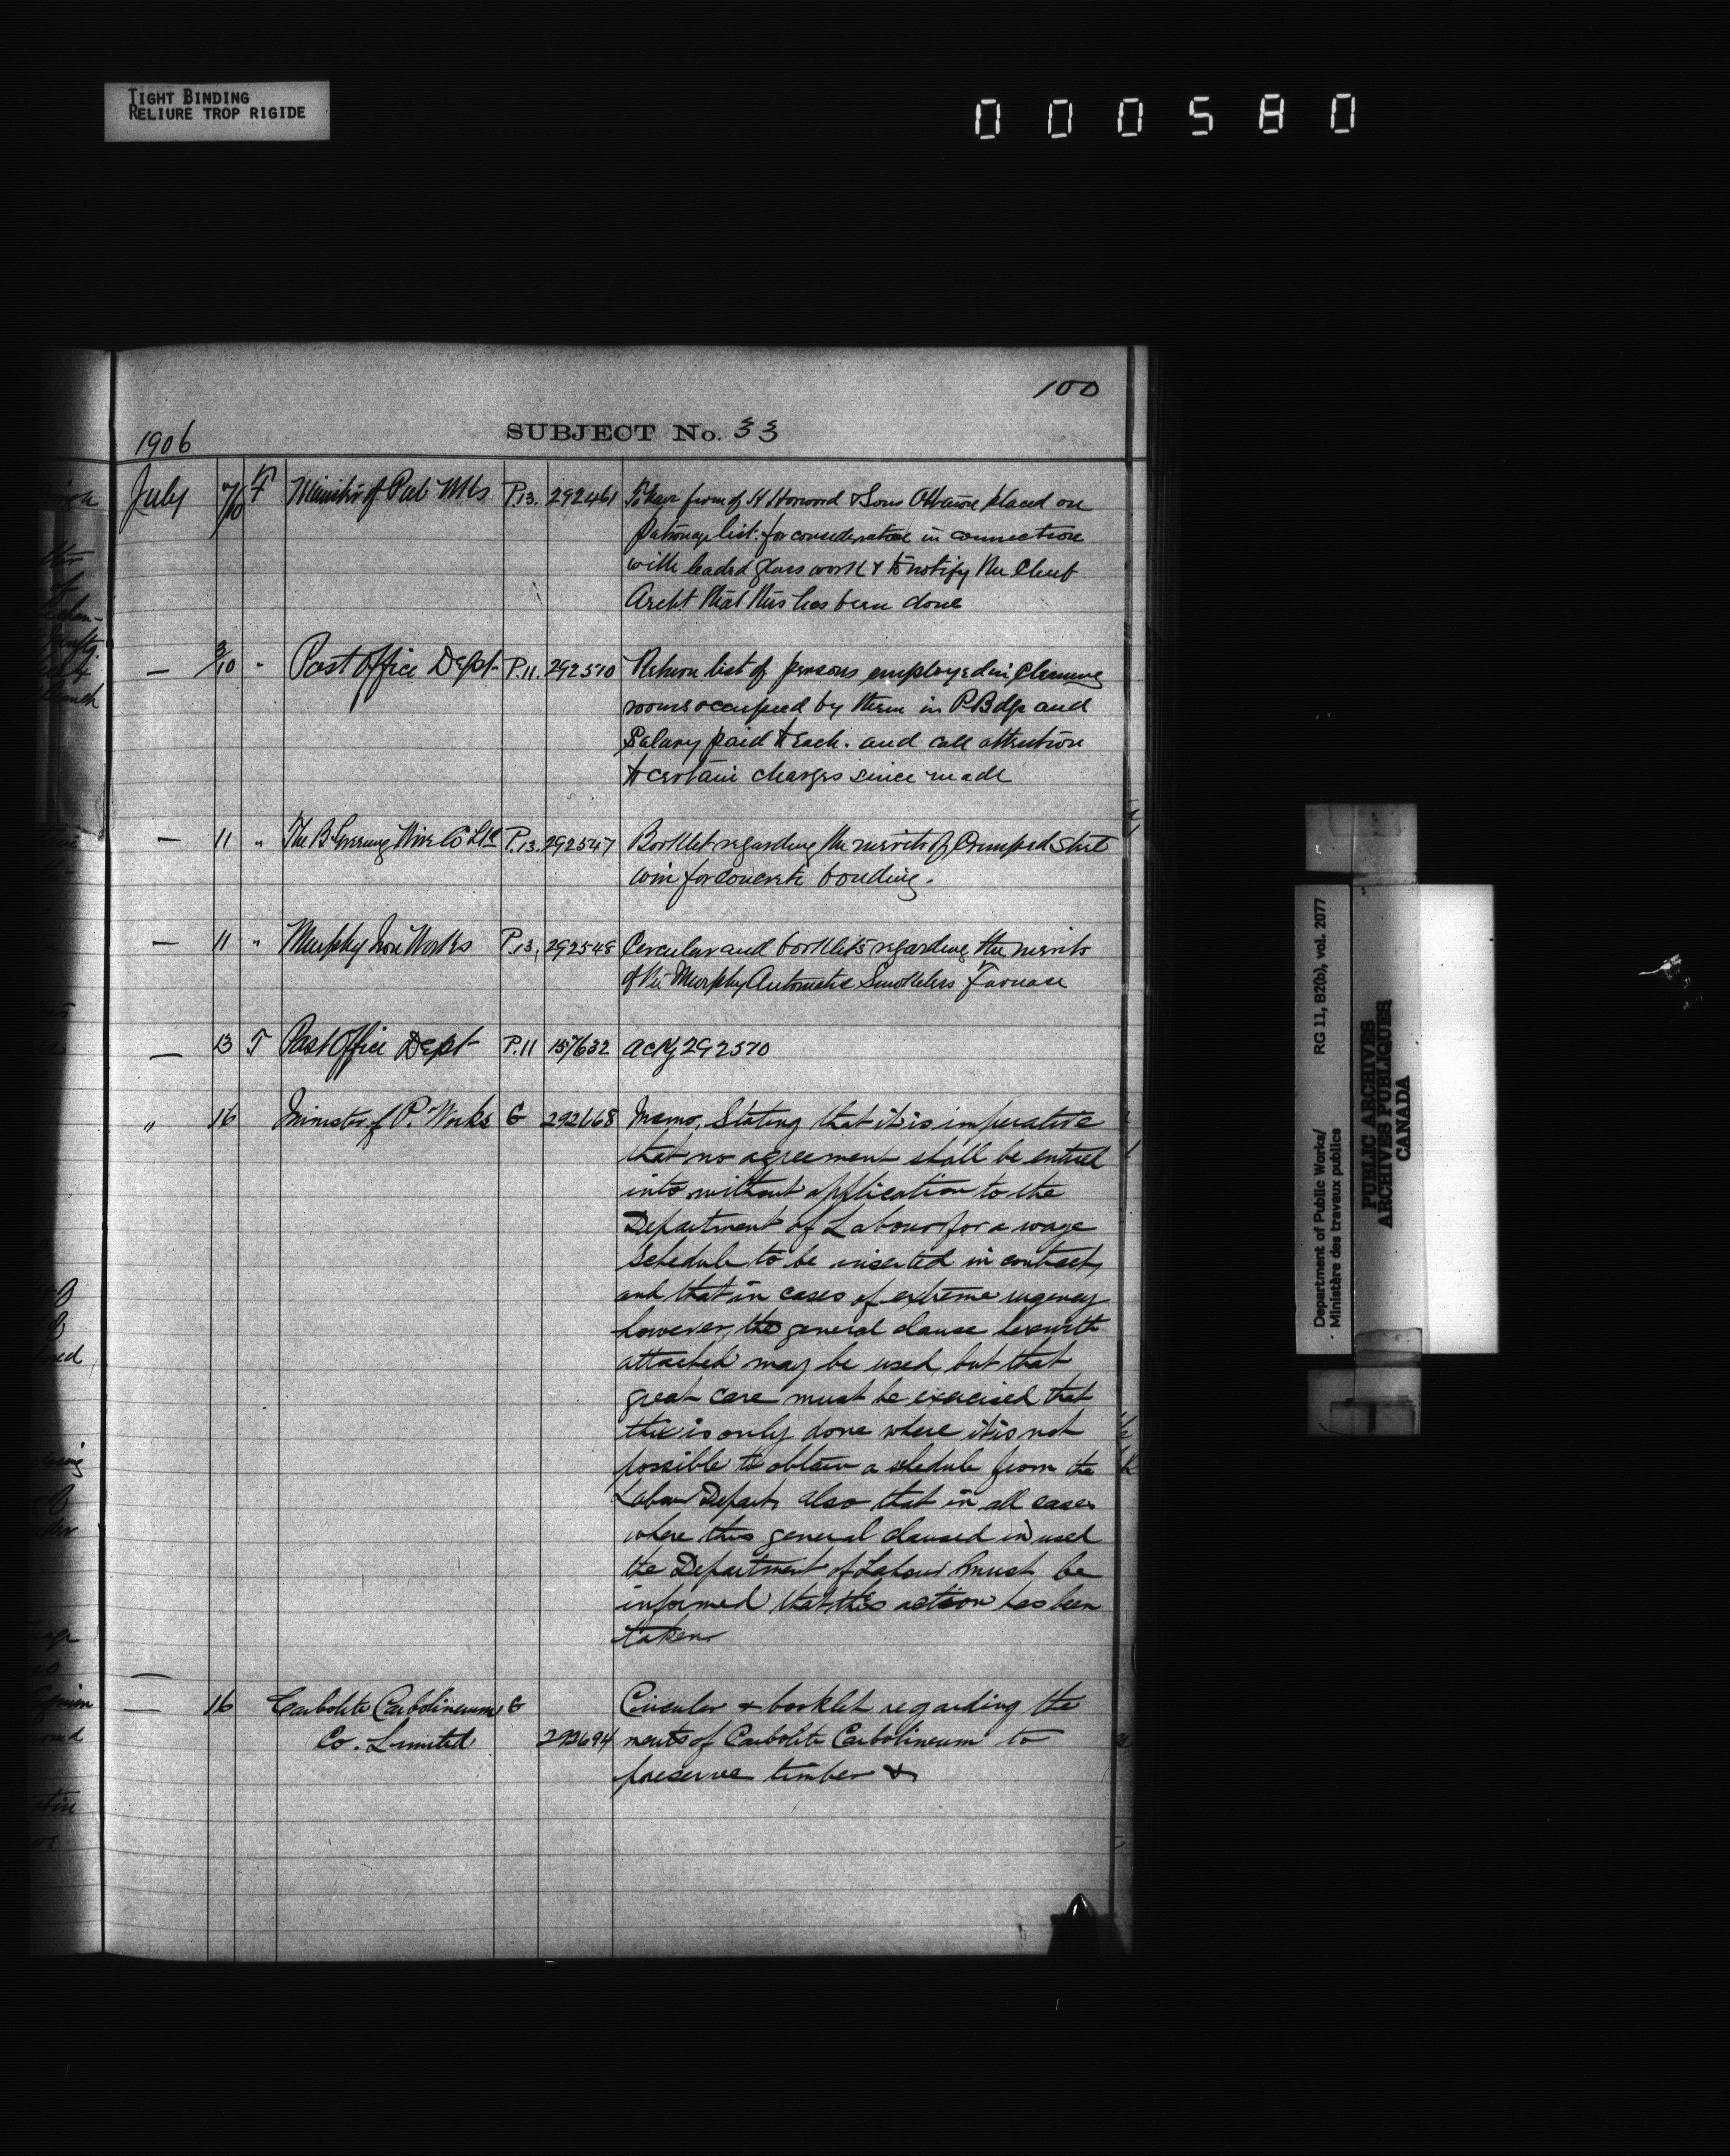 TIGHT BINDING
RELIURE TROP RIGIDE
000580
100
1906
SUBJECT No. 33
July 7/10 F Minister of Pub Wks P.13. 292461 To have firm of H Horwood & Sons Ottawa placed on
patronage list. for consideration in connection
with leaded glass work & to notify the Chief
Archt that this has been done
— 3/10 " Post Office Dept P.11. 292570 Return list of persons employed in cleaning
rooms occupied by them in P Bdgs and
Salary paid to each. and call attention
to certain changes since made
— 11 " The B. Greening Wire Co Ltd P.13. 292547 Booklet regarding the merits of Crimped steel
wire for concrete bonding.
— 11 " Murphy Iron Works P.13. 292548 Circular and booklets regarding the merits
of the Murphy Automatic Smokeless Furnace
— 13 T Post Office Dept P.11 157632 ackg 292570
" 16 Minister of P. Works G 292668 Memo. Stating that it is imperative
that no agreement shall be entered
into without application to the
Department of Labour for a wage
Schedule to be inserted in contract,
and that in cases of extreme urgency
however, the general clause herewith
attached may be used, but that
great care must be exercised that
this is only done where it is not
possible to obtain a schedule from the
Labour Depart, also that in all cases
where this general claused is used
the Department of Labour must be
informed that this action has been
taken
— 16 Carbolite Carbolineum G Circular & booklet regarding the
Co. Limited 292694 merits of Carbolite Carbolineum to
preserve timber &
Department of Public Works/ RG 11, B2(b), vol. 2077
Ministère des travaux publics
PUBLIC ARCHIVES
ARCHIVES PUBLIQUES
CANADA